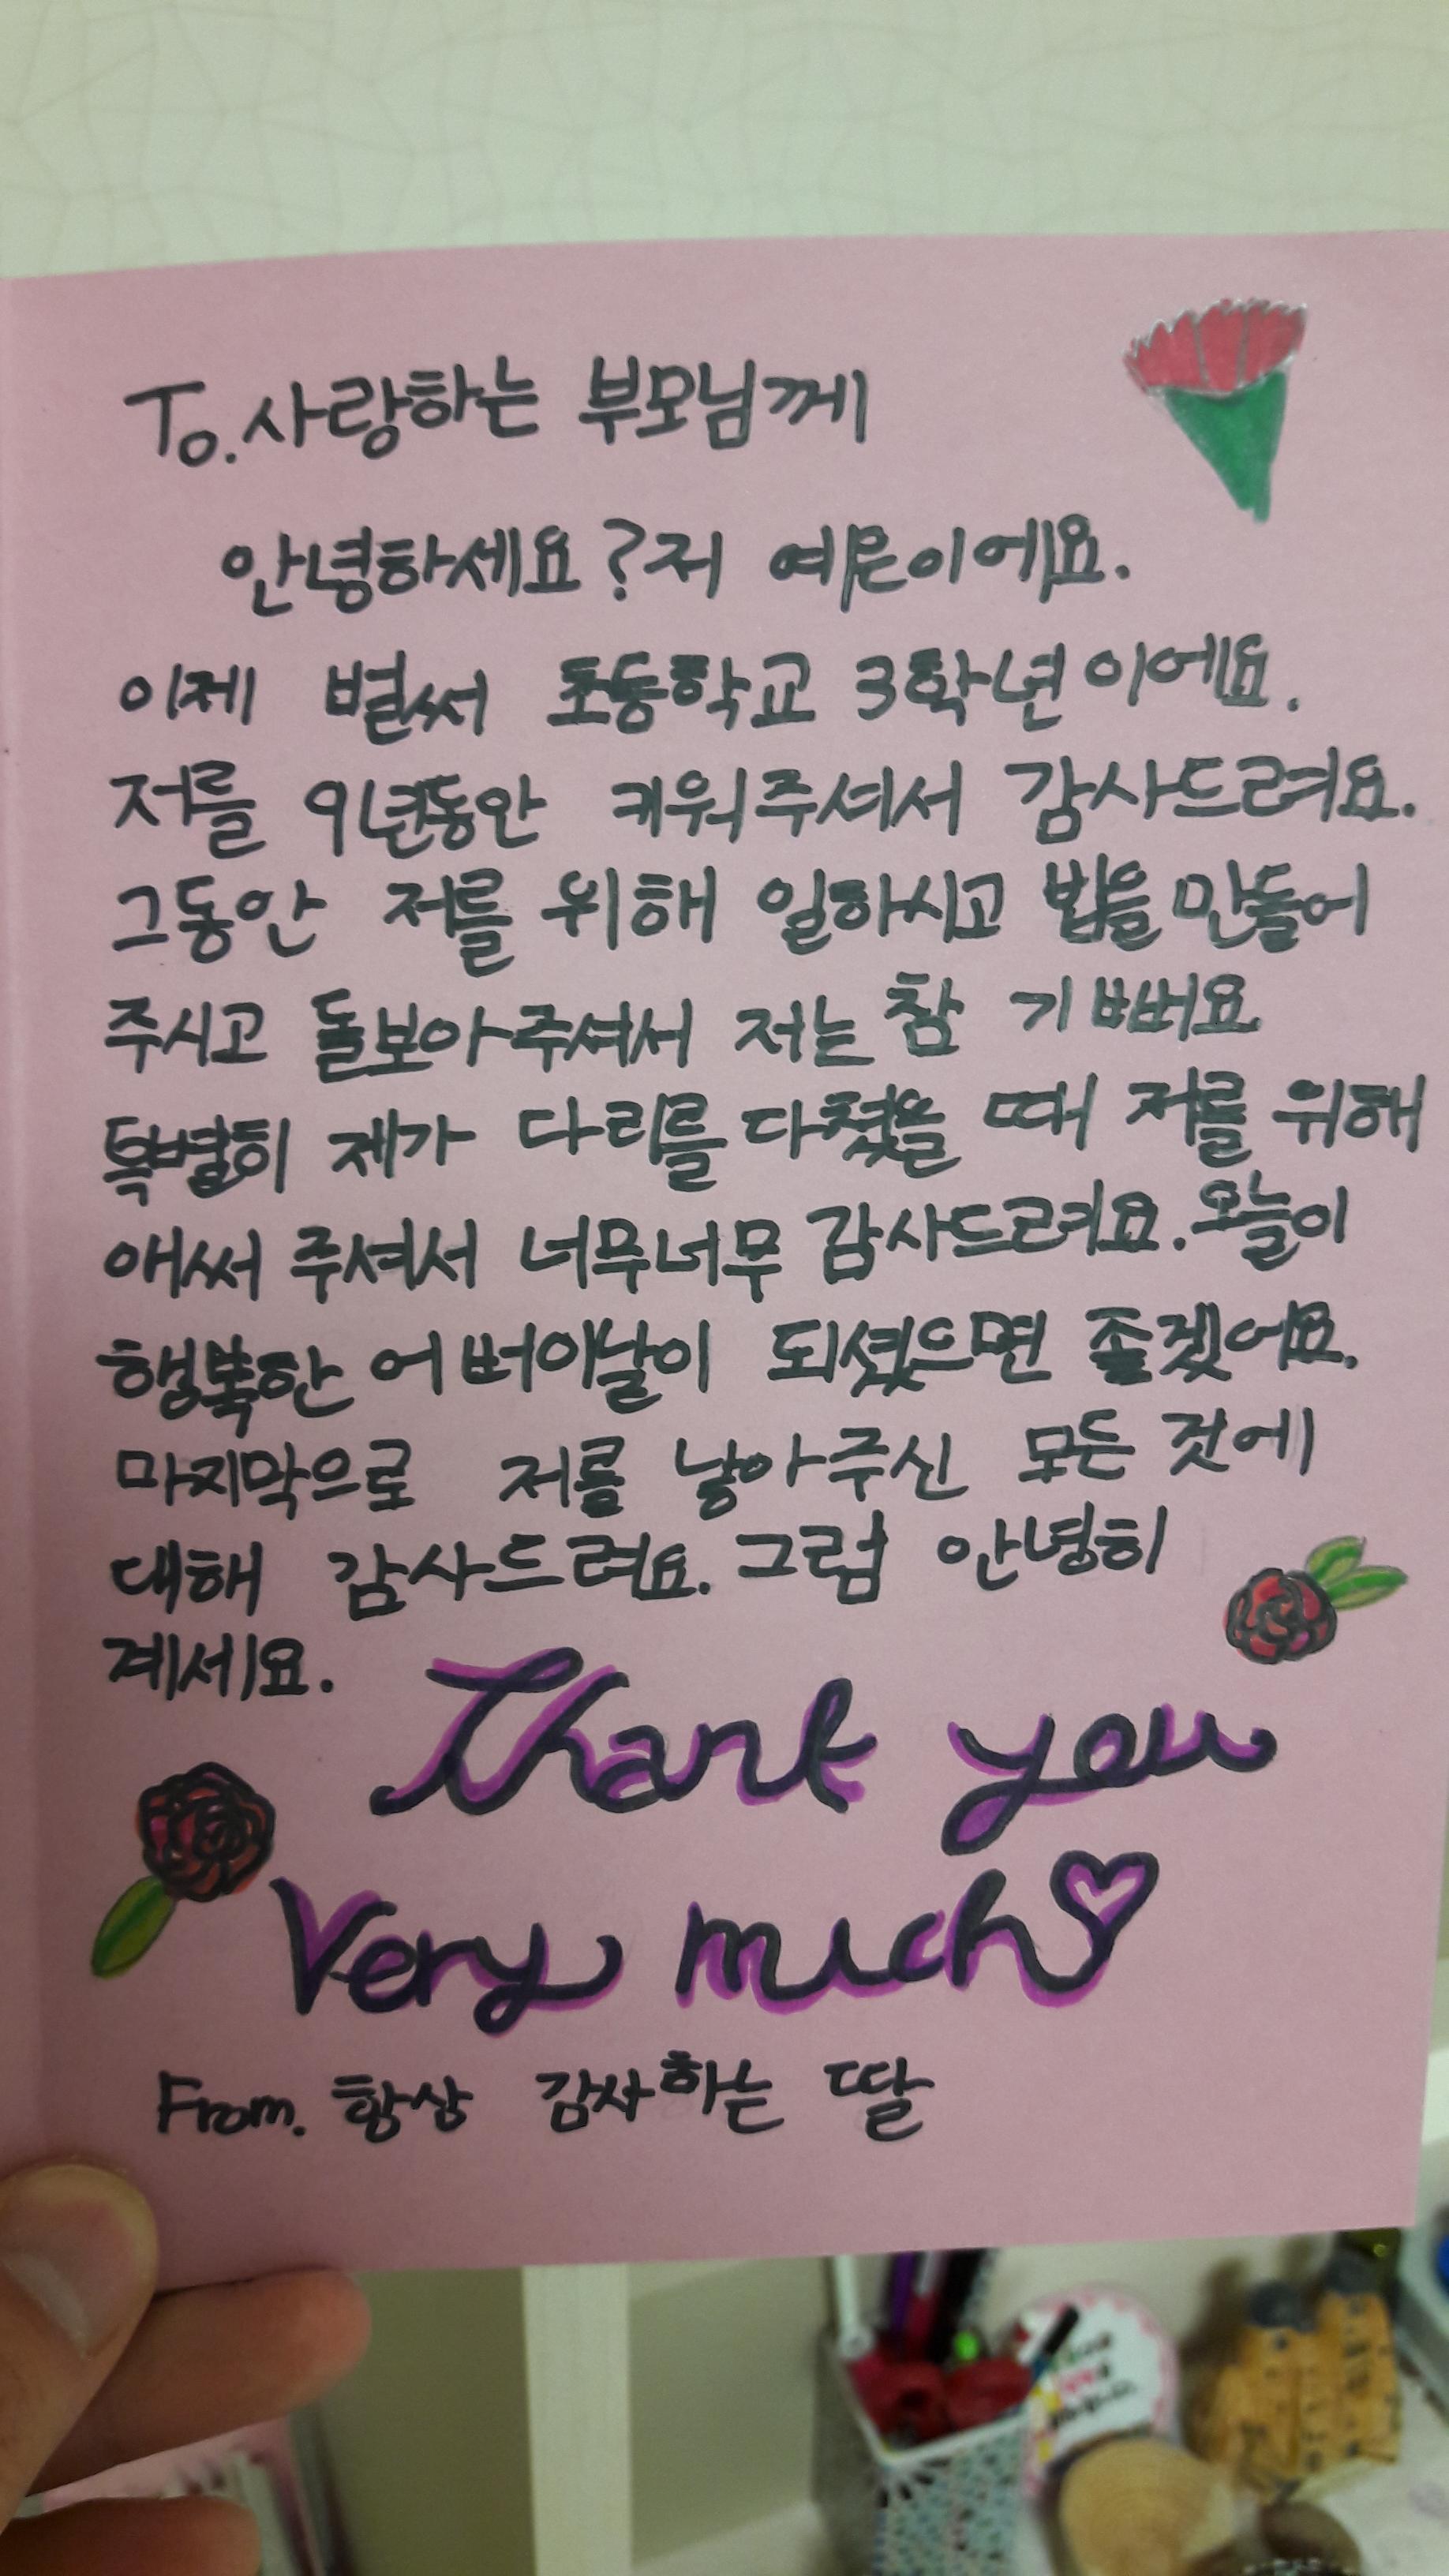 To. 사랑하는 부모님께
안녕하세요? 저 예은이에요.
이제 벌써 초등학교 3학년이에요.
저를 9년동안 키워주셔서 감사드려요.
그동안 저를 위해 일하시고 밥을 만들어
주시고 돌보아주셔서 저는 참 기뻐요
특별히 제가 다리를 다쳤을 때 저를 위해
애써 주셔서 너무너무 감사드려요. 오늘이
행복한 어버이날이 되셨으면 좋겠어요.
마지막으로 저를 낳아주신 모든 것에
대해 감사드려요. 그럼 안녕히
계세요.
Thank you
Very much
From. 항상 감사하는 딸